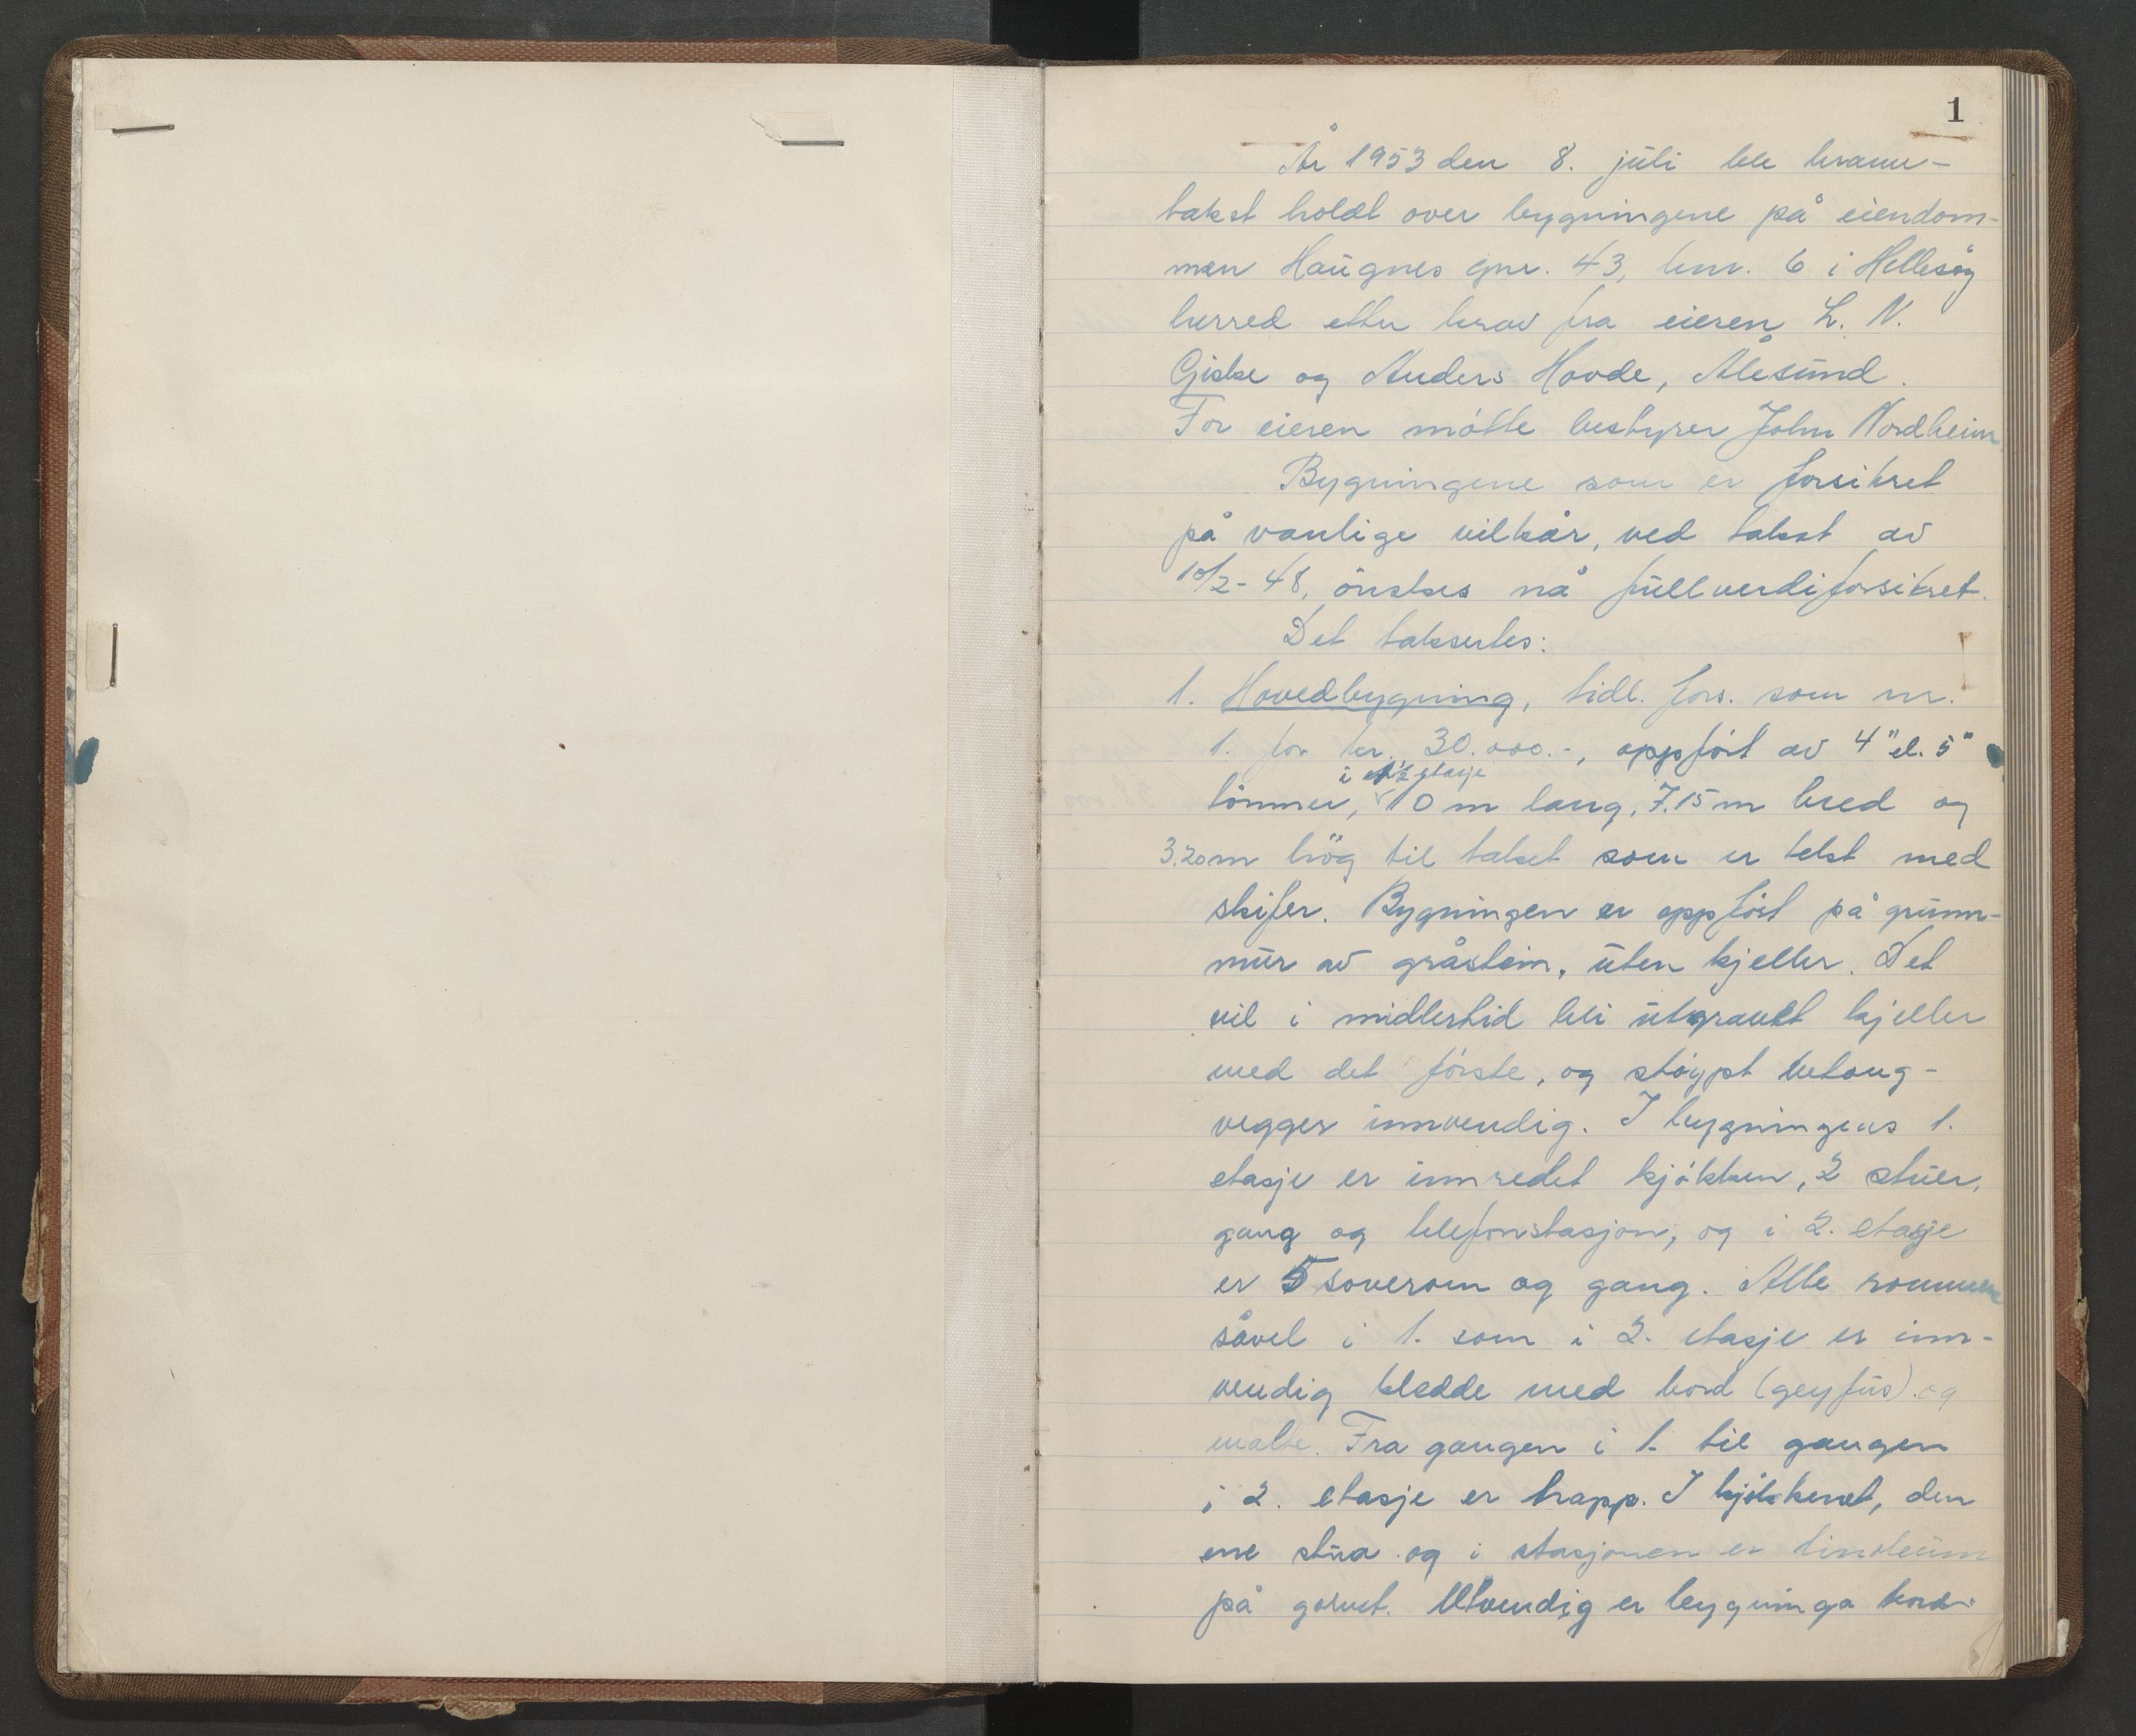 1
År 1953 den 8. juli ble brann-
takst holdt over bygningene på eiendom-
men Haugnes gnr. 43, bnr. 6 i Hillesøy
herred etter krav fra eieren, L. N.
Giske og Anders Hovde, Ålesund.
For eieren møtte bestyrer John Nordheim
Bygningene som er forsikret
på vanlige vilkår, ved takst av
10/2-48, ønskes nå fullverdiforsikret.
Det taksertes:
1. Hovedbygning, tidl. fors. som nr.
1. for kr. 30.000.-, oppført av 4" el. 5"
i 1½ etasje
tømmer, 10 m lang, 7.15 m bred og
3.20m høg til taket som er tekt med
skifer. Bygningen er oppført på grunn-
mur av gråstein, uten kjeller. Det
vil i midlertid bli utgravet kjeller
med det første, og støypt betong-
vegger innvendig. I bygningens 1.
etasje er innredet kjøkken, 2 stuer,
gang og telefonstasjon, og i 2. etasje
er 5 soverom og gang. Alle rommene
såvel i 1. som i 2. etasje er inn-
vendig kledde med bord (geyfus) og
malte. Fra gangen i 1. til gangen
i 2. etasje er trapp. I kjøkkenet, den
ene stua og i stasjonen er linoleum
på golvet. Utvendig er bygninga bord-